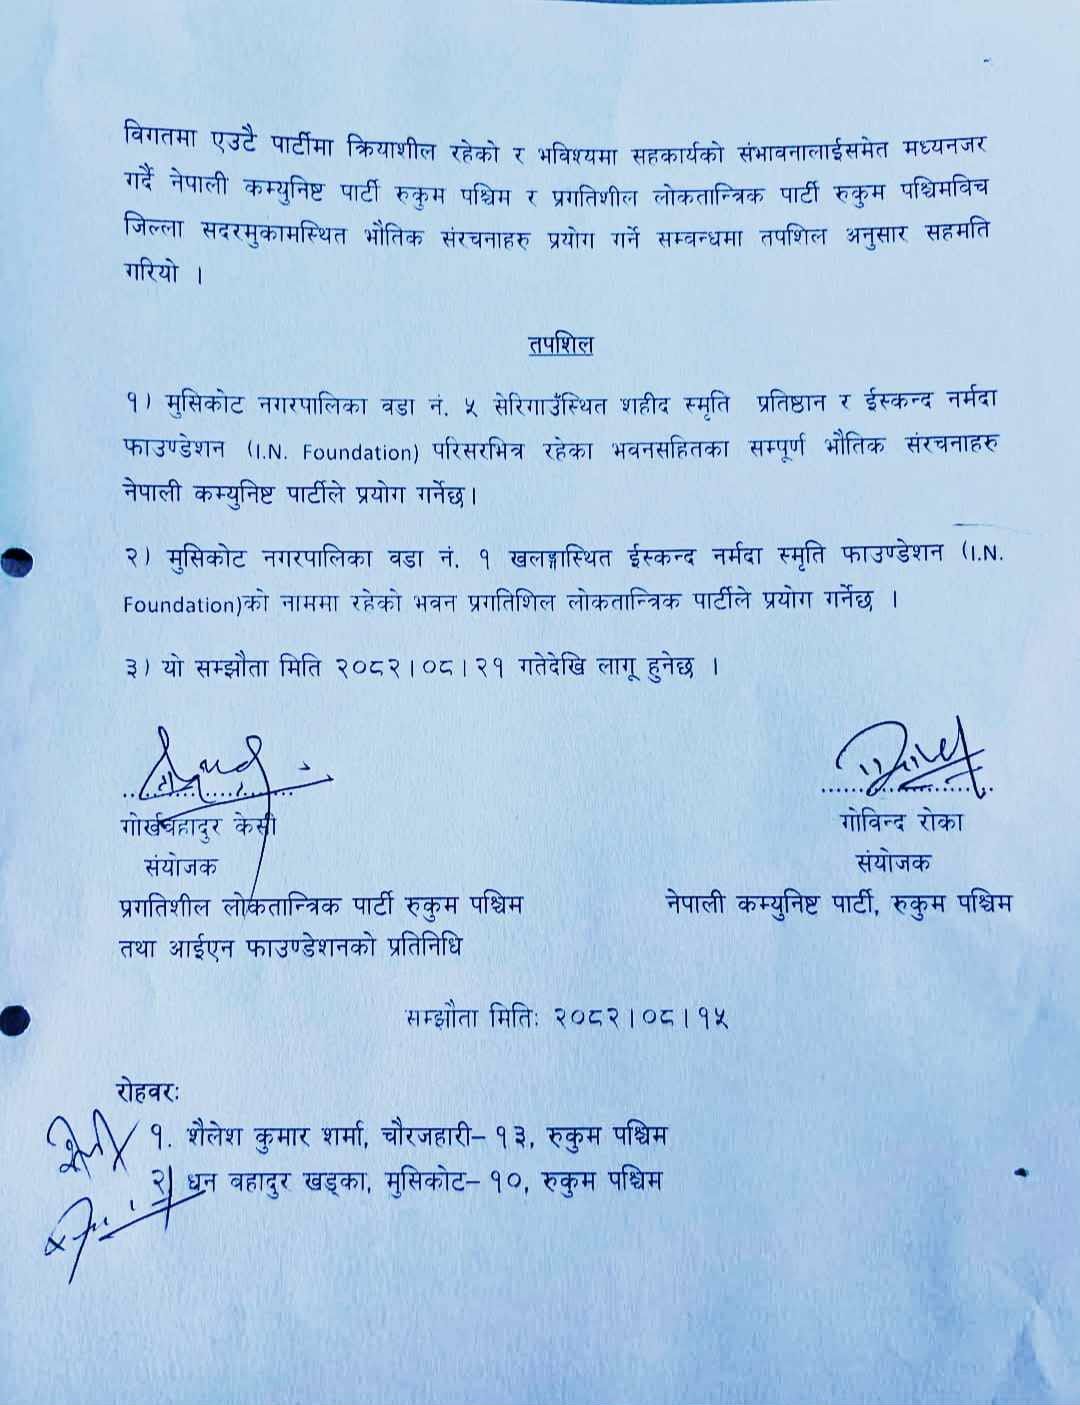 विगतमा एउटै पार्टीमा क्रियाशील रहेको र भविश्यमा सहकार्यको संभावनालाईसमेत मध्यनजर
गर्दै नेपाली कम्युनिष्ट पार्टी रुकुम पश्चिम र प्रगतिशील लोकतान्त्रिक पार्टी रुकुम पश्चिमविच
जिल्ला सदरमुकामस्थित भौतिक संरचनाहरु प्रयोग गर्ने सम्वन्धमा तपशिल अनुसार सहमति
गरियो ।
तपशिल
१) मुसिकोट नगरपालिका वडा नं. ५ सेरिगाउँस्थित शहीद स्मृति प्रतिष्ठान र ईस्कन्द नर्मदा
फाउण्डेशन (I.N. Foundation) परिसरभित्र रहेका भवनसहितका सम्पूर्ण भौतिक संरचनाहरु
नेपाली कम्युनिष्ट पार्टीले प्रयोग गर्नेछ।
२) मुसिकोट नगरपालिका वडा नं. १ खलङ्गास्थित ईस्कन्द नर्मदा स्मृति फाउण्डेशन (I.N.
Foundation)को नाममा रहेको भवन प्रगतिशिल लोकतान्त्रिक पार्टीले प्रयोग गर्नेछ ।
३) यो सम्झौता मिति २०८२।०८।२१ गतेदेखि लागू हुनेछ ।
गोर्खबहादुर केसी
संयोजक
प्रगतिशील लोकतान्त्रिक पार्टी रुकुम पश्चिम
तथा आईएन फाउण्डेशनको प्रतिनिधि
गोविन्द रोका
संयोजक
नेपाली कम्युनिष्ट पार्टी, रुकुम पश्चिम
सम्झौता मितिः २०८२।०८।१५
रोहवरः
१. शैलेश कुमार शर्मा, चौरजहारी– १३, रुकुम पश्चिम
२) धन बहादुर खड्का, मुसिकोट– १०, रुकुम पश्चिम